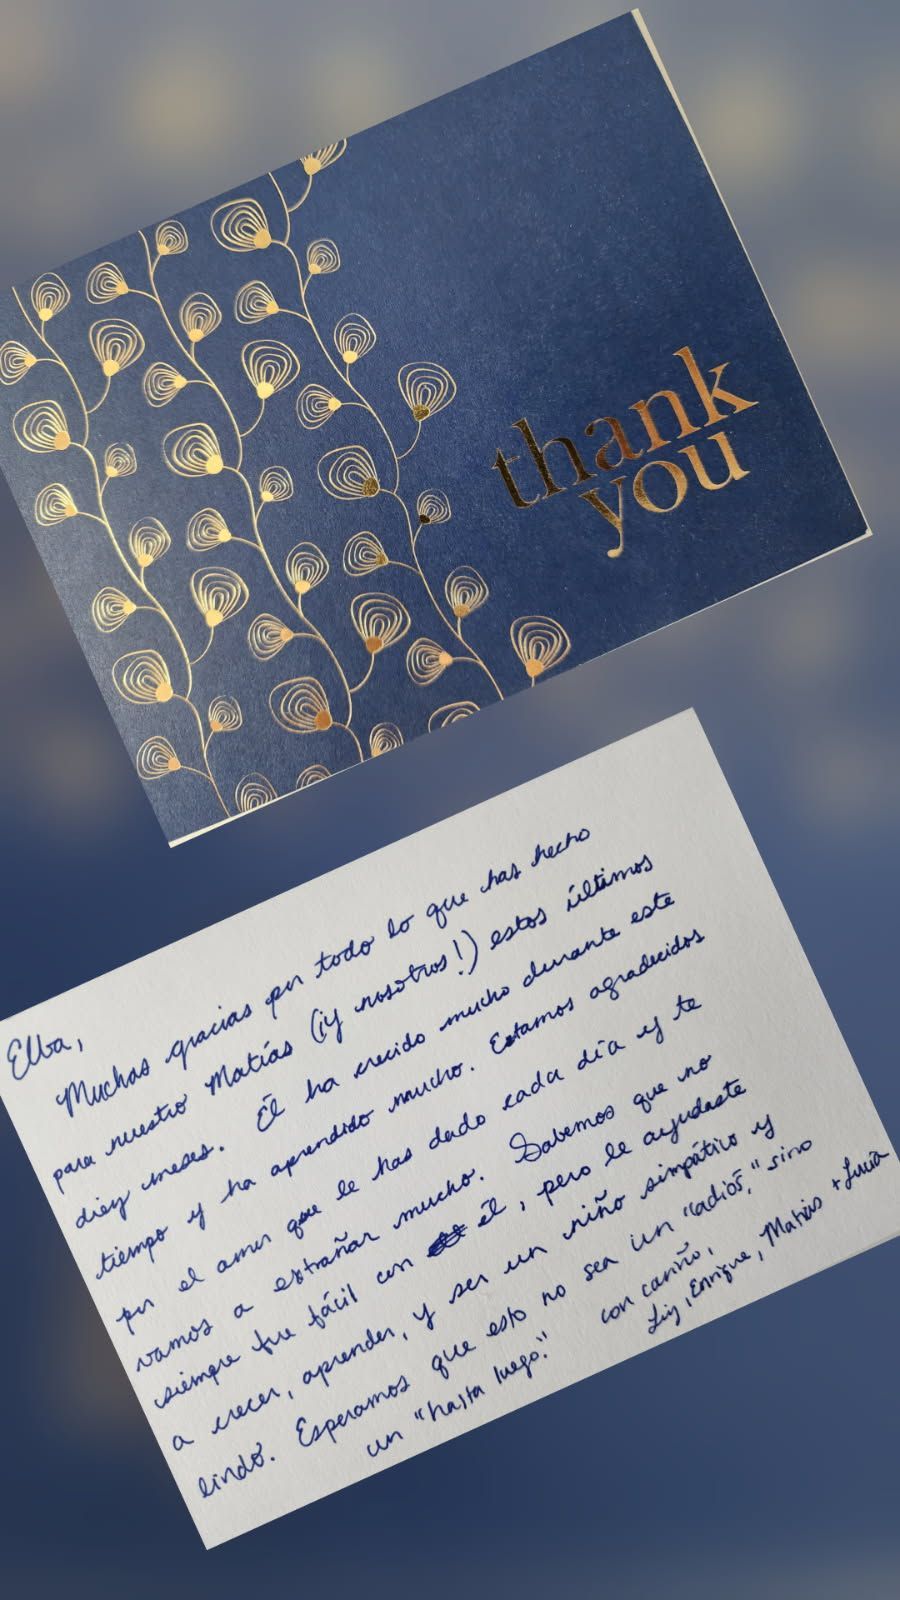 thank
you
Elba,
Muchas gracias por todo lo que has hecho
para nuestro Matías (¡y nosotros!) estos últimos
diez meses. Él ha crecido mucho durante este
tiempo y ha aprendido mucho. Estamos agradecidos
por el amor que le has dado cada día y te
vamos a estrañar mucho. Sabemos que no
siempre fue fácil con él, pero le ayudaste
a crecer, aprender, y ser un niño simpático y
lindo. Esperamos que esto no sea un "adiós," sino
un "hasta luego."
con cariño,
Liz, Enrique, Matías + Lucía